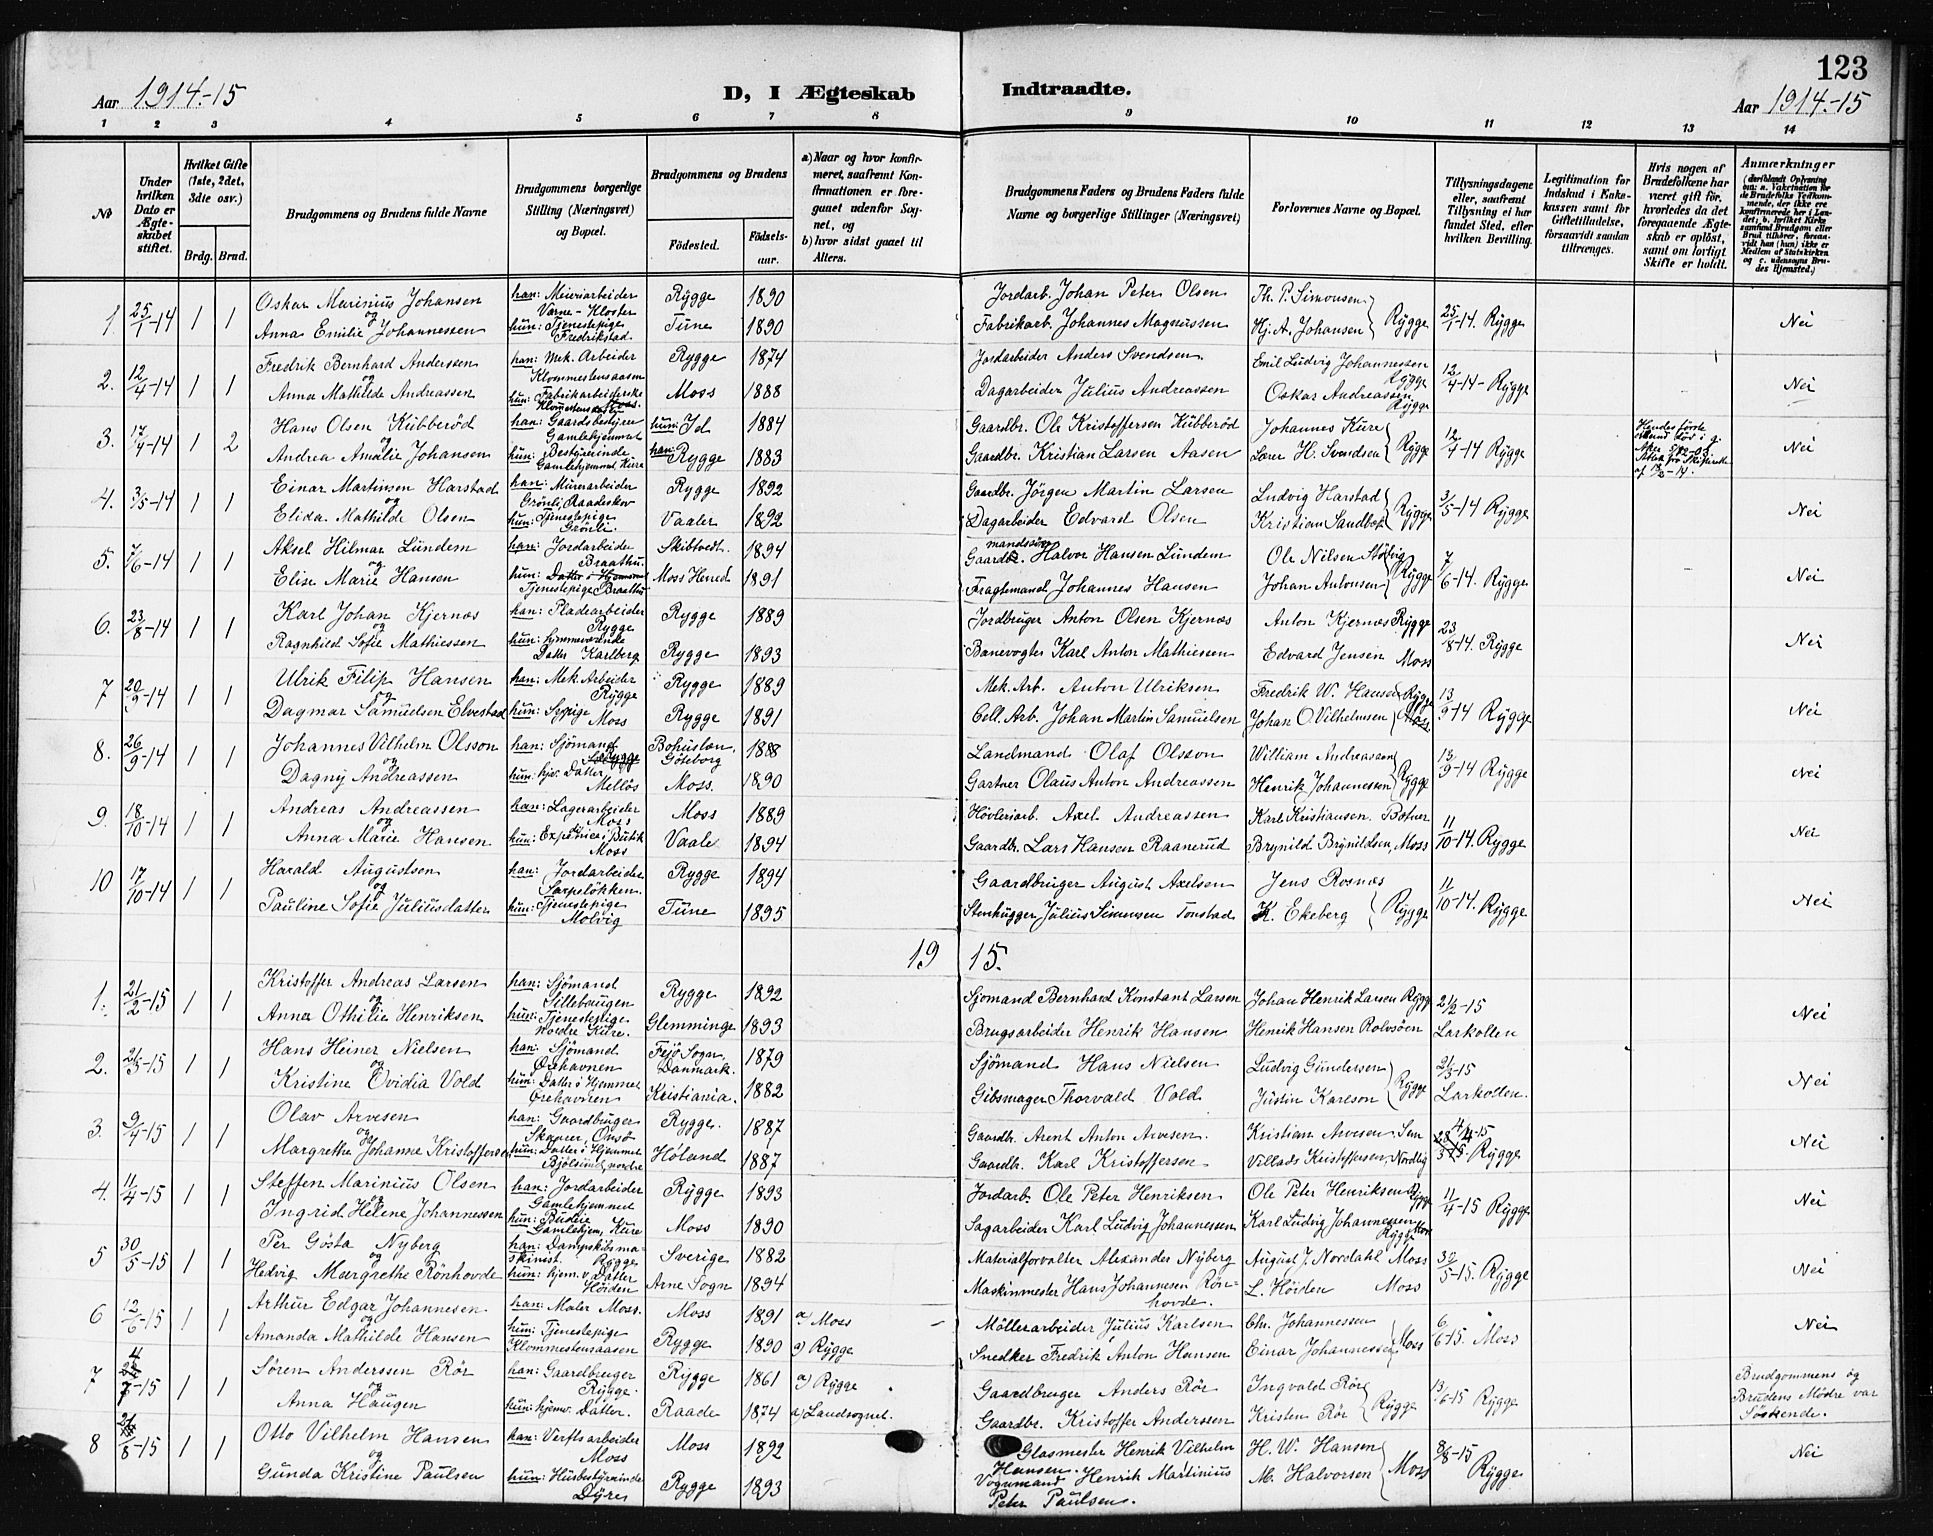 123
Aar 1914.-15 D, I Ægteskab Indtraadte. Aar 1914.-15
1 2 3 4 5 6 7 8 9 10 11 12 13 14
No
Under hvilken Dato er Ægteskabet stiftet.
Hvilket Gifte (1ste, 2det, 3die osv.)
Brdg. Brud.
Brudgommens og Brudens fulde Navne
Brudgommens borgerlige Stilling (Næringsvei) og Bopæl.
Brudgommens og Brudens
Fødested. Fødselsaar.
a) Naar og hvor konfirmeret, saafremt Konfirmationen er foregaaet udenfor Sognet, og
b) hvor sidst gaaet til Alters.
Brudgommens Faders og Brudens Faders fulde Navne og borgerlige Stillinger (Næringsvei)
Forlovernes Navne og Bopæl.
Tillysningsdagene eller, saafremt Tillysning ei har fundet Sted, efter hvilken Bevilling.
Legitimation for Indskud i Enkekassen samt for Giftetilladelse, forsaavidt saadan tiltrænges.
Hvis nogen af Brudefolkene har været gift før, hvorledes da det foregaaende Ægteskab er opløst, samt om lovligt Skifte er holdt.
Anmærkninger
1. 25/1-14 1 1 Oskar Marinius Johansen han: Meieriarbeider Rygge 1890 Jordarb. Johan Peter Olsen Th. P. Simonsen 25/1-14. Rygge Nei
og Varne-Kloster
Anna Emilie Johannessen hun: Tjenestepige Tune 1890 Fabrikarb. Johannes Magnussen Hj. A. Johansen Rygge
Fredrikstad.
2. 12/4-14 1 1 Fredrik Bernhard Anderssen han: Mek. Arbeider Rygge 1874 Jordarbeider Anders Svendsen. Emil Ludvig Johannessen Rygge 12/4-14- Rygge Nei
og Klommestensaasen
Anna Mathilde Andreassen hun: Fabrikarbeiderske Moss 1888 Dagarbeider Julius Andreassen Oskar Andreassen Rygge
3. 17/4-14 1 2 Hans Olsen Kubberød han: Gaardsbestyrer hun: Id 1884 Gaardbr. Ole Kristoffersen Kubberød Johannes Kure 12/4-14 Rygge Hendes første Nei
og Gamlehjemmet
Andrea Amalie Johansen hun: Bestyrerinde han: Rygge 1883 Gaardbr. Kristian Larsen Aasen Lærer H. Svendsen Rygge
Gamlehjemmet, Kure
4. 3/5-14 1 1 Einar Martinsen Harstad han: Murerarbeider Rygge 1892 Gaardbr. Jørgen Martin Larsen Ludvig Harstad 3/5-14 Rygge Nei
og Grønli, Raadeskov
Elida Mathilde Olsen hun: Tjenestepige Vaaler 1892 Dagarbeider Edvard Olsen Kristian Sandbæk Rygge
Grønli.
5. 7/6-14 1 1 Aksel Hilmar Lundem han: Jordarbeider Skibtvedt. 1894 Gaardmandssøn Halvor Hansen Lundem Ole Nilsen Støtvig 7/6-14. Rygge Nei
og Braathu.
Elise Marie Hansen hun: Datter i Hjemmet Moss Hered 1891 Fragtemand Johannes Hansen Johan Antonsen Rygge
Tjenestepige Braathu
6. 23/8-14 1 1 Karl Johan Kjernæs han: Pladearbeider Rygge 1889 Jordbruger Anton Olsen Kjernæs Anton Kjernæs Rygge 23/8-14. Rygge Nei
og Rygge
Ragnhild Sofie Mathiessen hun: hjemmeværende Rygge 1893 Banevogter Karl Anton Mathiessen Edvard Jensen Moss
Datter Karlberg
7 20/9-14 1 1 Ulrik Filip Hansen han: Mek. Arbeider Rygge 1889 Mek. Arb. Anton Ulriksen Fredrik W. Hansen Rygge 13/9-14 Rygge Nei
og Rygge
Dagmar Samuelsen Elvestad hun: Sypige Rygge 1891 Cell. Arb. Johan Martin Samuelsen Johan O. Vilhelmsen Moss
Moss
8. 26/9-14 1 1 Johannes Vilhelm Olsson han: Sjømand Bohuslæn, Göteborg 1888 Landmand Olaf Olsson William Andreassen 13/9-14 Rygge Nei
og
Dagny Andreassen hun: hjv. Datter Moss. 1890 Gartner Olaus Anton Andreassen Henrik Johannessen Rygge
Melløs
9. 18/10-14 1 1 Andreas Andreassen han: Lagerarbeider Moss 1889 Høvleriarb. Axel Andreassen Karl Kristiansen. Botner 11/10-14. Rygge Nei
og Moss
Anna Marie Hansen hun: Expetrice i Butik Vaale 1894 Gaardbr. Lars Hansen Raanerud Brynild Brynildsen, Moss
Moss
10 17/10-14 1 1 Harald Augustsen han: Jordarbeider Rygge 1894 Gaardbruger August Axelsen Jens Rosnæs 11/10-14. Rygge Nei
og Sarpeløkken.
Pauline Sofie Juliusdatter hun: Tjenestepige Tune 1895 Stenhugger Julius Simensen Tonstad K. Ekeberg Rygge
Molvig
19 15.
1. 21/2-15 1 1 Kristoffer Andreas Larsen han: Sjømand Rygge 1892 Sjømand Bernhard Konstant Larsen Johan Henrik Larsen Rygge 21/2-15 Nei
og Sillebaugen
Anna Othilie Henriksen hun: Tjenestepige Glemminge 1893 Brugsarbeider Henrik Hansen Henrik Hansen Rolvsøen Larkollen
Nordre Kure.
2. 21/3-15 1 1 Hans Heiner Nielsen han: Sjømand Fejø Sogn Danmark. 1879 Sjømand Hans Nielsen Ludvig Gundersen 21/3-15 Nei
og Ørehavnen
Kristine Ovidia Vold hun: Datter i Hjemmet Kristiania. 1882 Gibsmager Thorvald Vold Justin Karlson Rygge Larkollen.
Ørehavnen
3. 9/4-15 1 1 Olav Arvesen han: Gaardbruger Rygge. 1887 Gaardb. Arent Anton Arvesen. Kristian Arvesen Sen 4/4-15 Nei
og Skaarer, Onsø
Margrethe Johanne Kristoffersen hun: Datter i Hjemmet Høland 1887 Gaardb. Karl Kristoffersen Villads Kristoffersen Nordlig Rygge
Bjølsund nordre
4. 11/4-15 1 1 Steffen Marinius Olsen han: Jordarbeider Rygge 1893 Jordarb. Ole Peter Henriksen Ole Peter Henriksen Rygge 11/4-15 Rygge Nei
og Gamlehjemmet
Ingrid Helene Johannessen hun: Budeie Moss 1890 Sagarbeider Karl Ludvig Johannessen Karl Ludvig Johannessen
Gamlehjem, Kure
5 30/5-15 1 1 Per Gösta Nyberg han: Dampskibsmaskinist. Rygge Sverige 1882 Materialforvalter Alexander Nyberg August J. Nordahl Moss 30/5-15. Rygge Nei
og
Hedvig Margrethe Rönhovde hun: hjem. v. Datter Arne Sogn 1894 Maskinmester Hans Johannesen Rönhovde. L. Höiden Moss
Höiden
6 12/6-15 1 1 Arthur Edgar Johannesen han: Maler Moss. Moss 1891 a) Moss Møllerarbeider Julius Karlsen Chr. Johannessen 6/6-15. Moss Nei
og
Amanda Mathilde Hansen hun: Tjenestepige Rygge 1890 a) Rygge Snedker Fredrik Anton Hansen Einar Johannessen Moss
Klommestensaasen
7 4/7-15 1 1 Søren Anderssen Rør han: Gaardbruger Rygge 1861 a) Rygge Gaardbruger Anders Rør Ingvald Rør 13/6-15 Rygge Brudgommens og
og Rygge. Brudens Mødre var
Anna Haugen hun: hjemv. Datter. Raade 1874 a) Landsognet. Gaardbr. Kristoffer Anderssen Kristen Rør Rygge Søskende.
8 21/8-15 1 1 Otto Vilhelm Hansen han: Verftsarbeider Moss 1892 Glasmester Henrik Vilhelm H. W. Hansen 8/8-15 Nei
og Moss Hansen.
Gunda Kristine Paulsen hun: Husbestyrerinde Rygge 1893 Vognmand Henrik Martinius M. Halvorsen Moss Rygge
Dyre Peter Paulsen.